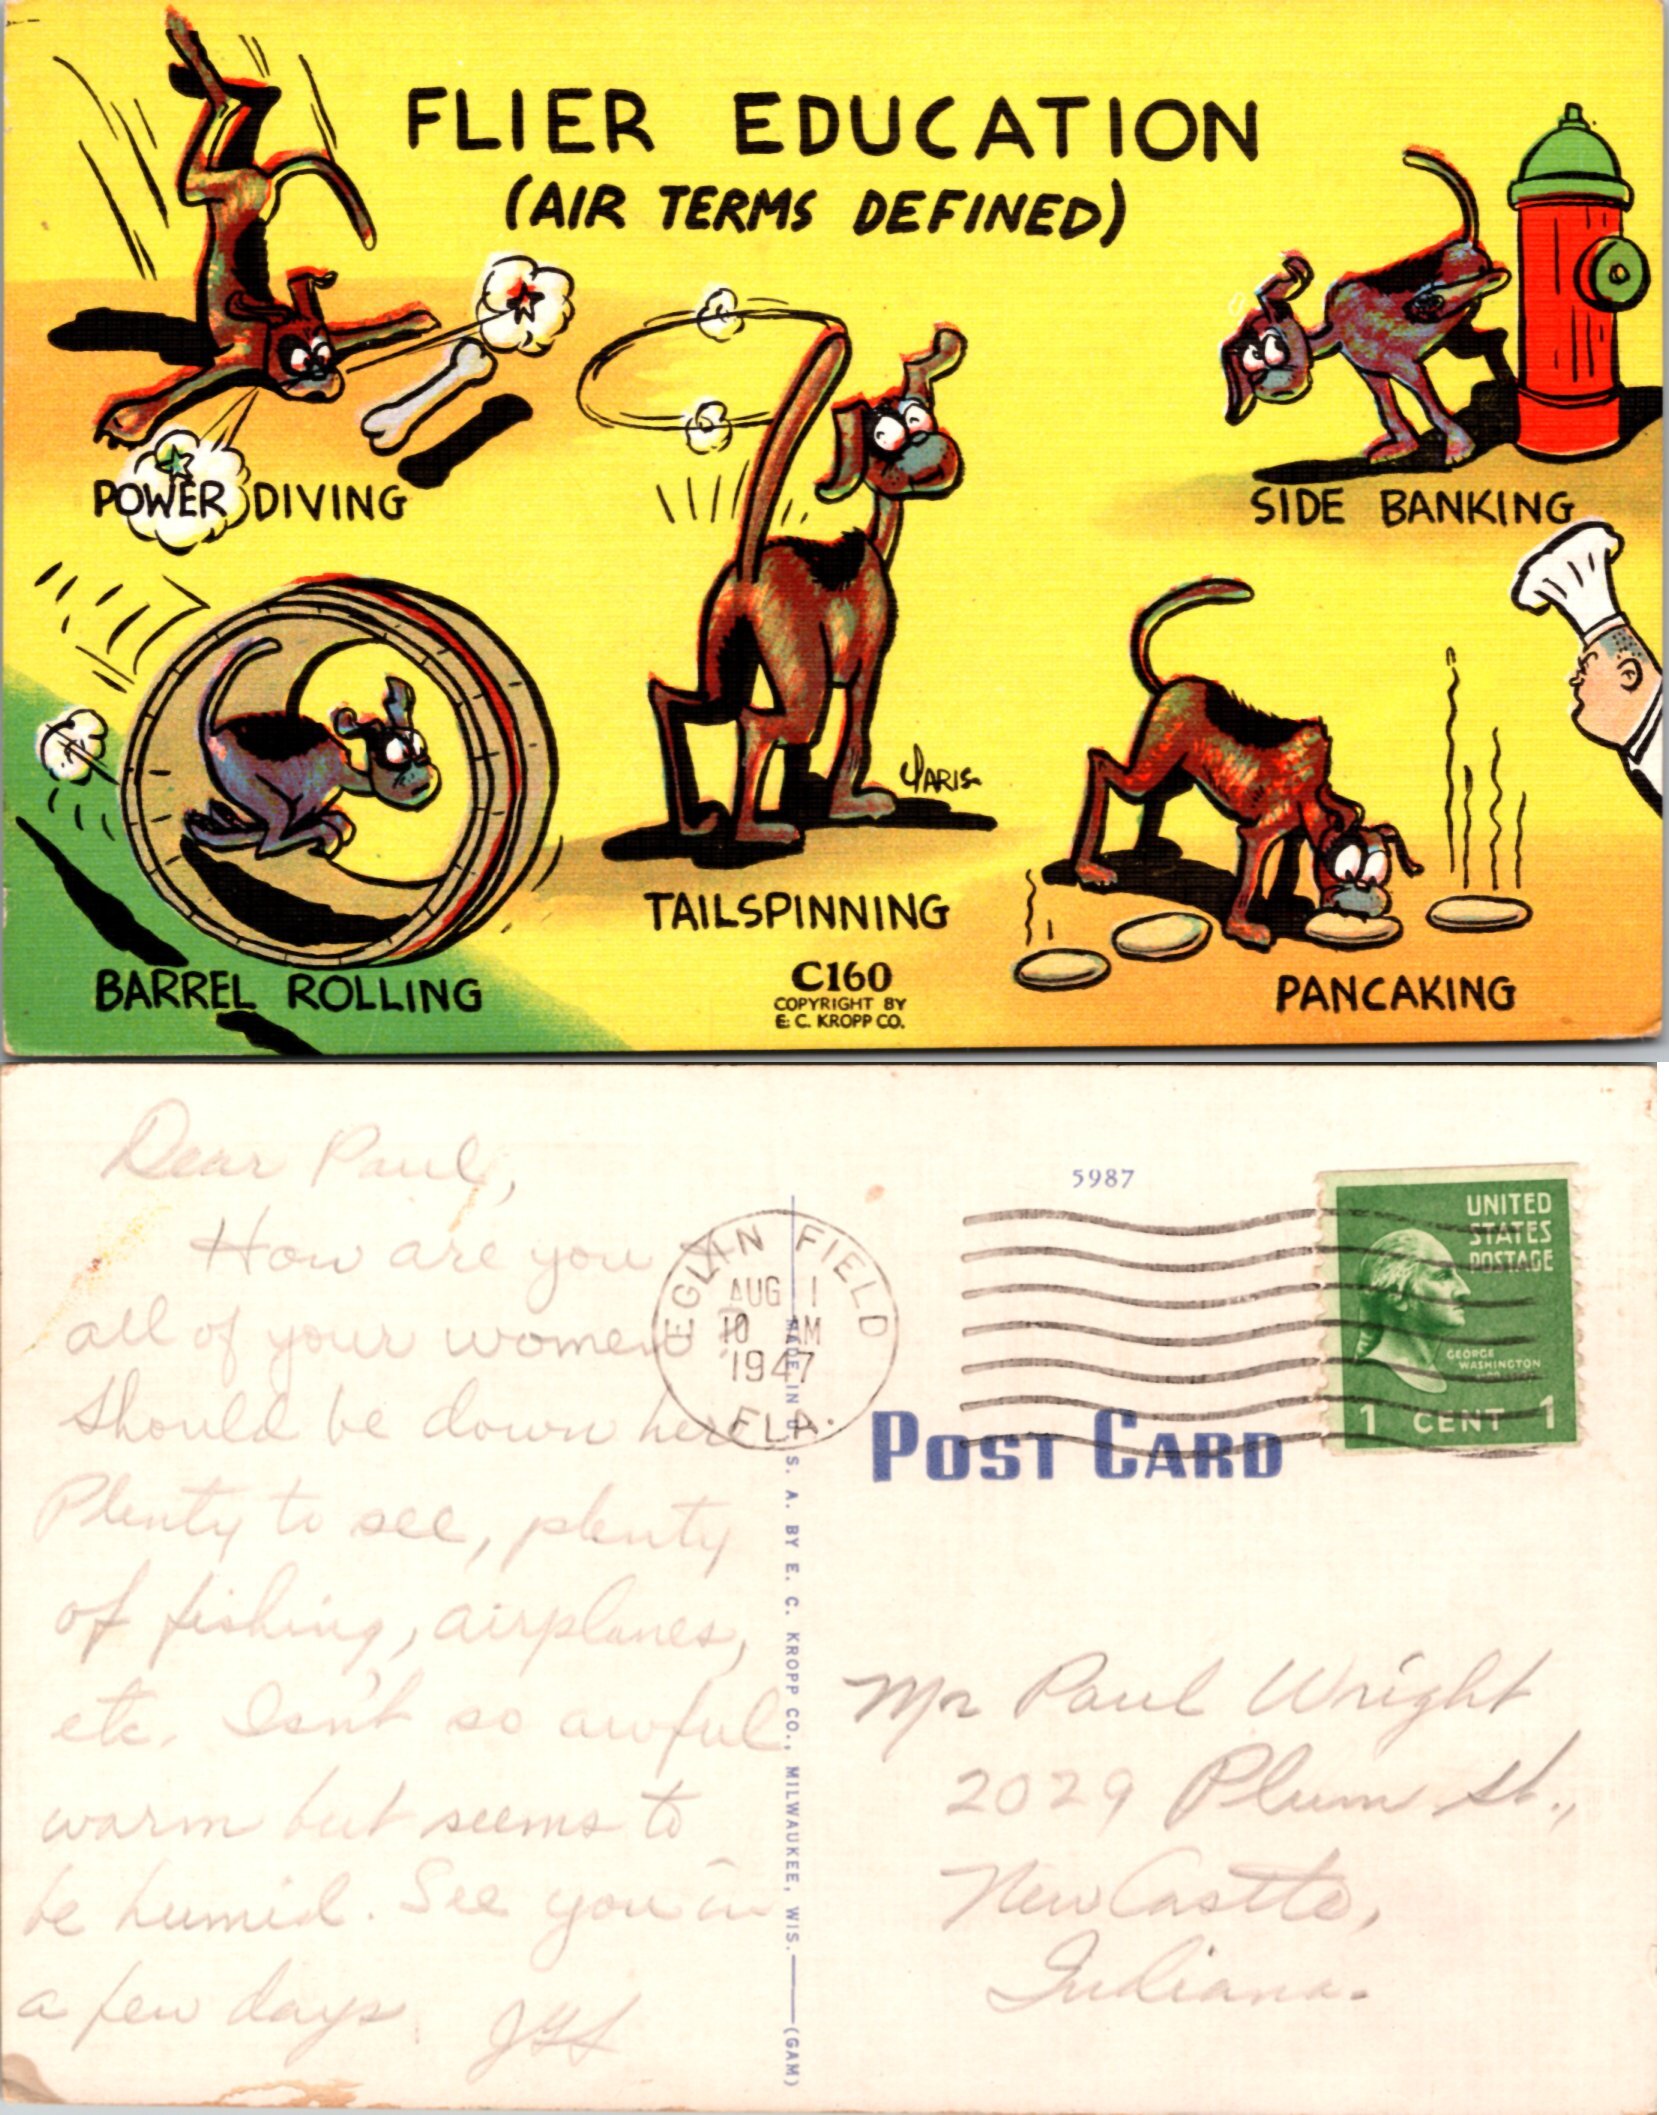 FLIER EDUCATION
(AIR TERMS DEFINED)
POWER DIVING
SIDE BANKING
TAILSPINNING
BARREL ROLLING
PANCAKING
C160
COPYRIGHT BY
E. C. KROPP CO.
Dear Paul,
How are you
all of your women
should be down here
Plenty to see, plenty
of fishing, airplanes,
etc. Isn't so awful
warm but seems to
be humid. See you in
a few days.
5987
EGLIN FIELD
AUG 1
10 AM
1947
FLA.
UNITED
STATES
POSTAGE
GEORGE
WASHINGTON
1 CENT 1
POST CARD
MADE IN U. S. A. BY E. C. KROPP CO., MILWAUKEE, WIS.—(GAM)
Mr Paul Wright
2029 Plum St.,
New Castle,
Indiana.